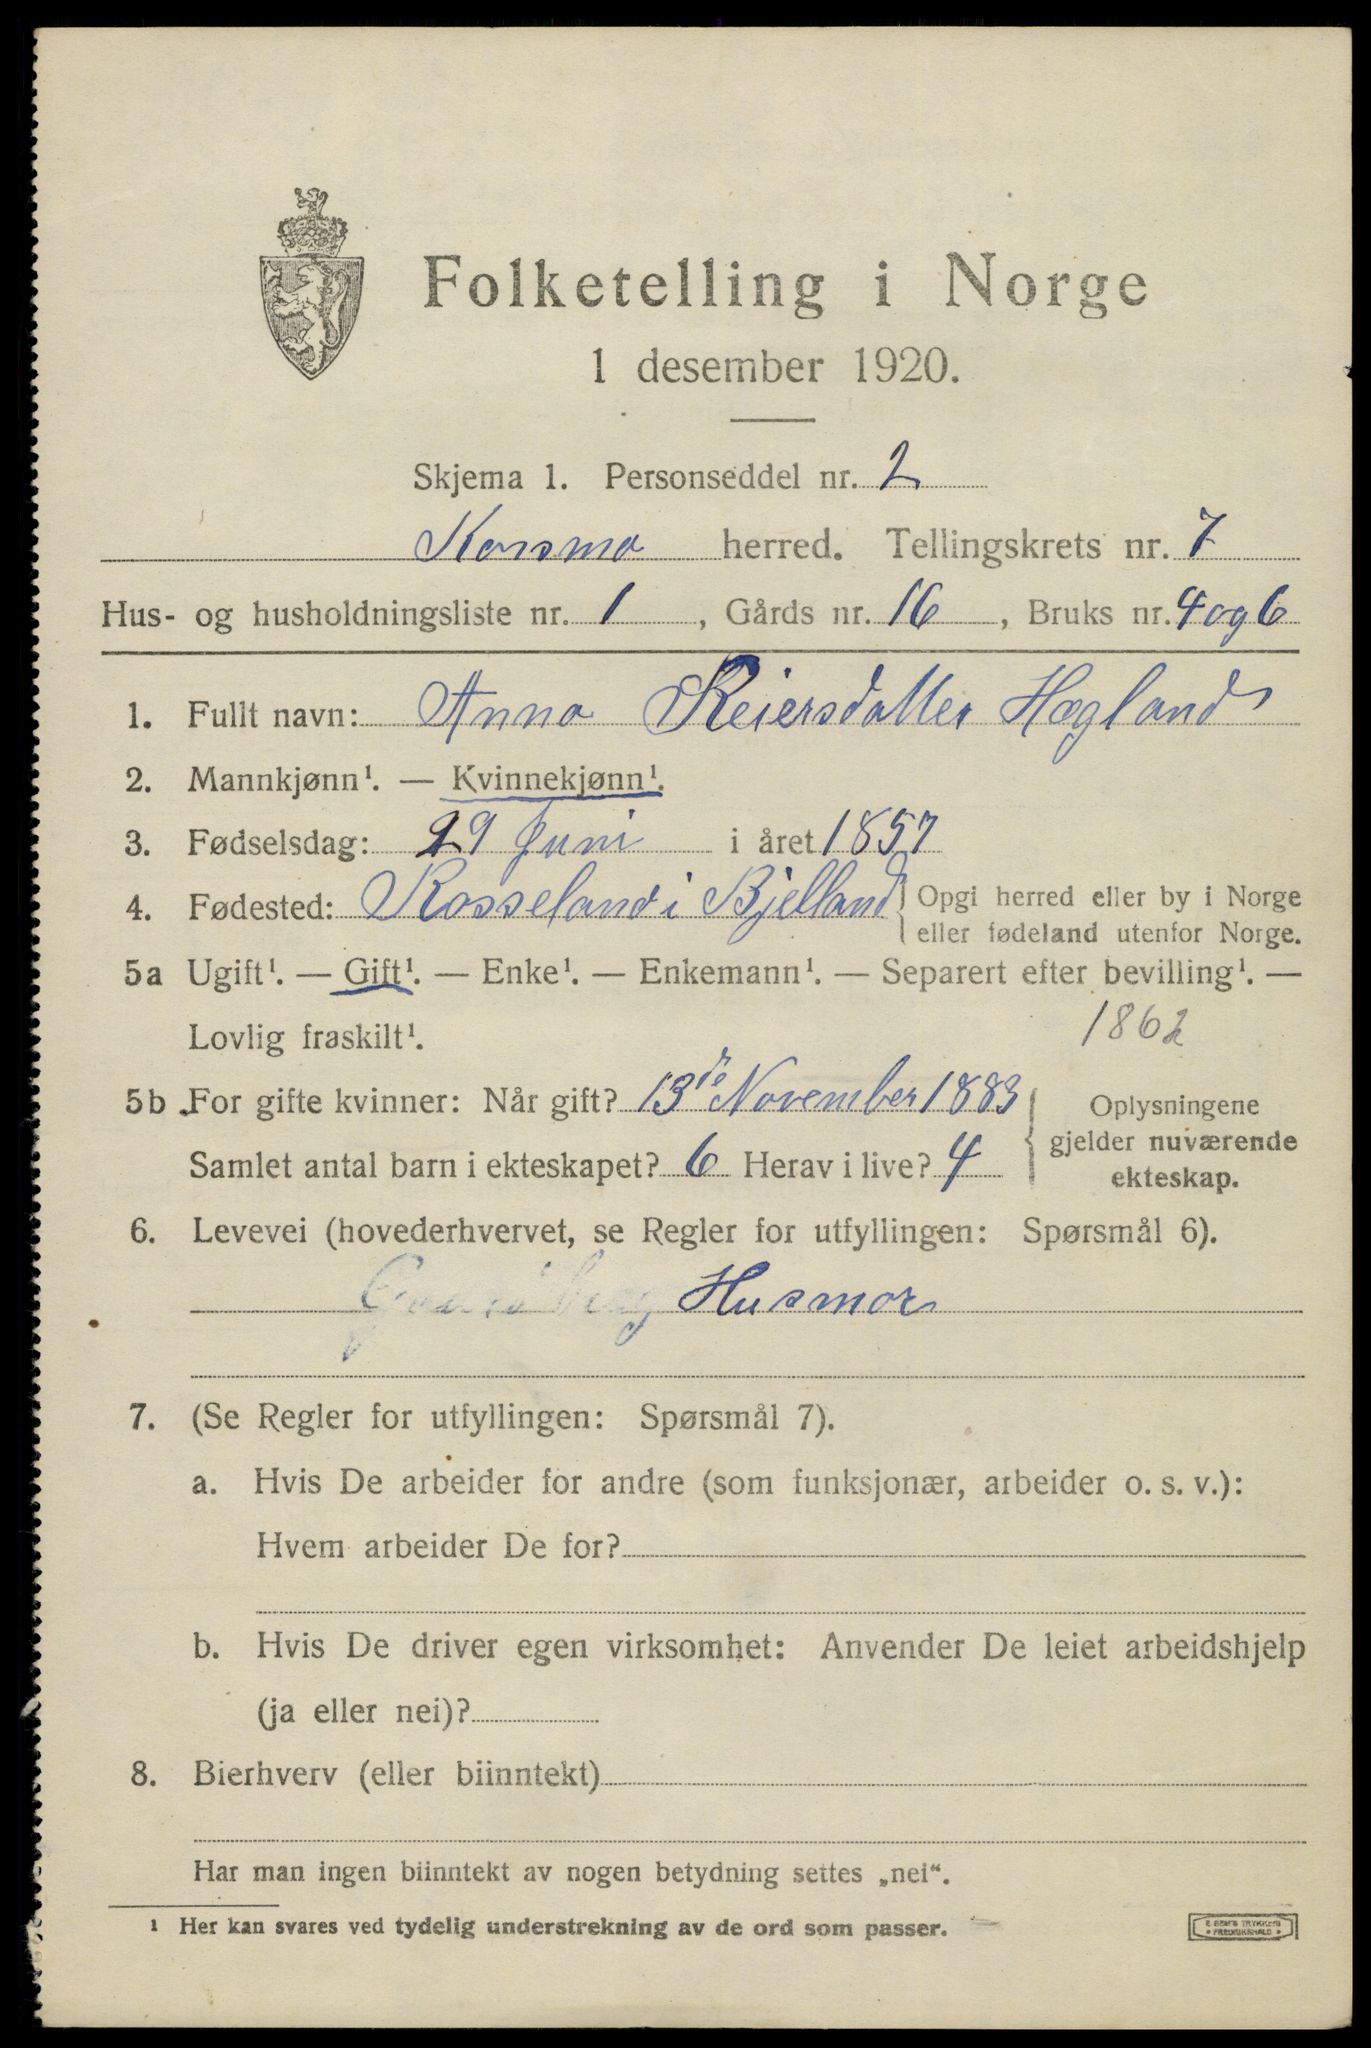 Folketelling i Norge
1 desember 1920.
Skjema 1. Personseddel nr. 2
Konsmo herred. Tellingskrets nr. 7
Hus- og husholdningsliste nr. 1, Gårds nr. 16, Bruks nr. 4 og 6
1. Fullt navn: Anna Reiersdatter Hægland
2. Mannkjønn¹. — Kvinnekjønn¹.
3. Fødselsdag: 29 Juni i året 1857
4. Fødested: Rosseland i Bjelland { Opgi herred eller by i Norge
eller fødeland utenfor Norge.
5a Ugift¹. — Gift¹. — Enke¹. — Enkemann¹. — Separert efter bevilling¹. —
Lovlig fraskilt¹. 1862
5b For gifte kvinner: Når gift? 13de November 1883 { Oplysningene
gjelder nuværende
Samlet antal barn i ekteskapet? 6 Herav i live? 4
ekteskap.
6. Levevei (hovederhvervet, se Regler for utfyllingen: Spørsmål 6).
Husmor
7. (Se Regler for utfyllingen: Spørsmål 7).
a. Hvis De arbeider for andre (som funksjonær, arbeider o. s. v.):
Hvem arbeider De for?
b. Hvis De driver egen virksomhet: Anvender De leiet arbeidshjelp
(ja eller nei)?
8. Bierhverv (eller biinntekt)
Har man ingen biinntekt av nogen betydning settes „nei“.
¹ Her kan svares ved tydelig understrekning av de ord som passer.
TRYKKERI
FREDRIKSHALD